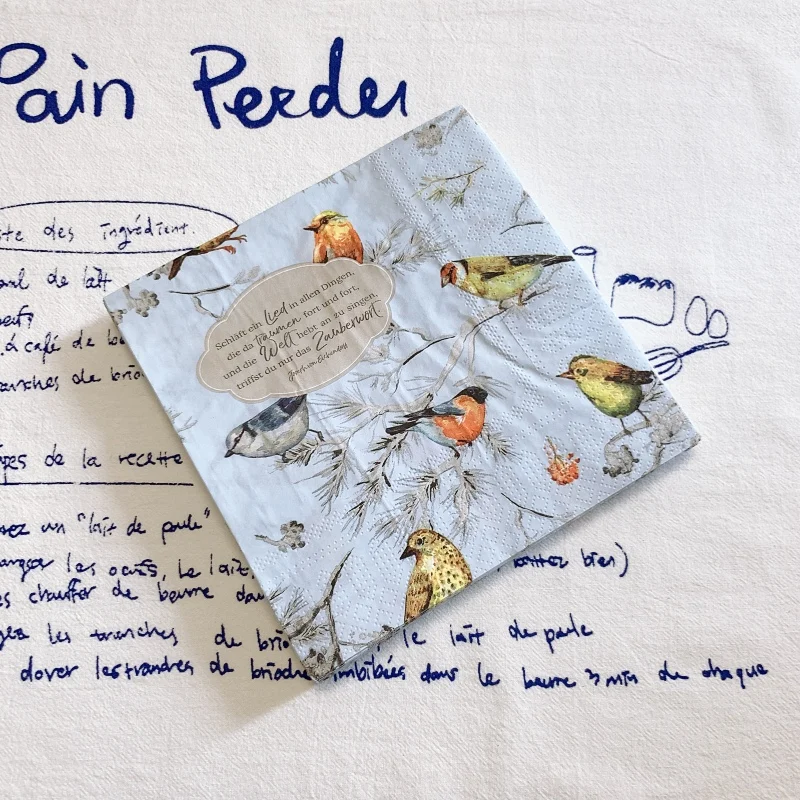 Pain Perdu
ste des ingrédient.
de lait
café de
tranches de brio
de la recette
un "lait de poule"
les oeufs, le lait,
bien)
chauffer de beurre
les tranches de brio
le lait de poule
dorer les trandres de brioche imbibées dans le beurre 3 min de chaque
Schläft ein Lied in allen Dingen,
die da träumen fort und fort,
und die Welt hebt an zu singen,
triffst du nur das Zauberwort.
Joseph von Eichendorff